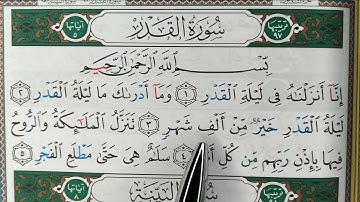 ترتيبها ٩٧ سورة القدر آياتها ٥
بِسْمِ اللَّهِ الرَّحْمَٰنِ الرَّحِيمِ
إِنَّا أَنزَلْنَاهُ فِي لَيْلَةِ الْقَدْرِ ١ وَمَا أَدْرَاكَ مَا لَيْلَةُ الْقَدْرِ ٢
لَيْلَةُ الْقَدْرِ خَيْرٌ مِّنْ أَلْفِ شَهْرٍ ٣ تَنَزَّلُ الْمَلَائِكَةُ وَالرُّوحُ
فِيهَا بِإِذْنِ رَبِّهِم مِّن كُلِّ ٤ سَلَامٌ هِيَ حَتَّىٰ مَطْلَعِ الْفَجْرِ ٥
ترتيبها سورة البينة آياتها ٨